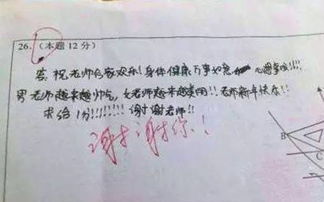 26. (本题12分)
答:祝老师合家欢乐!身体健康万事如意 心想事成!!!!
男老师越来越帅气,女老师越来越美丽!!老师新年快乐!!
求给1分!!!!!!!谢谢老师!!
谢谢你!!